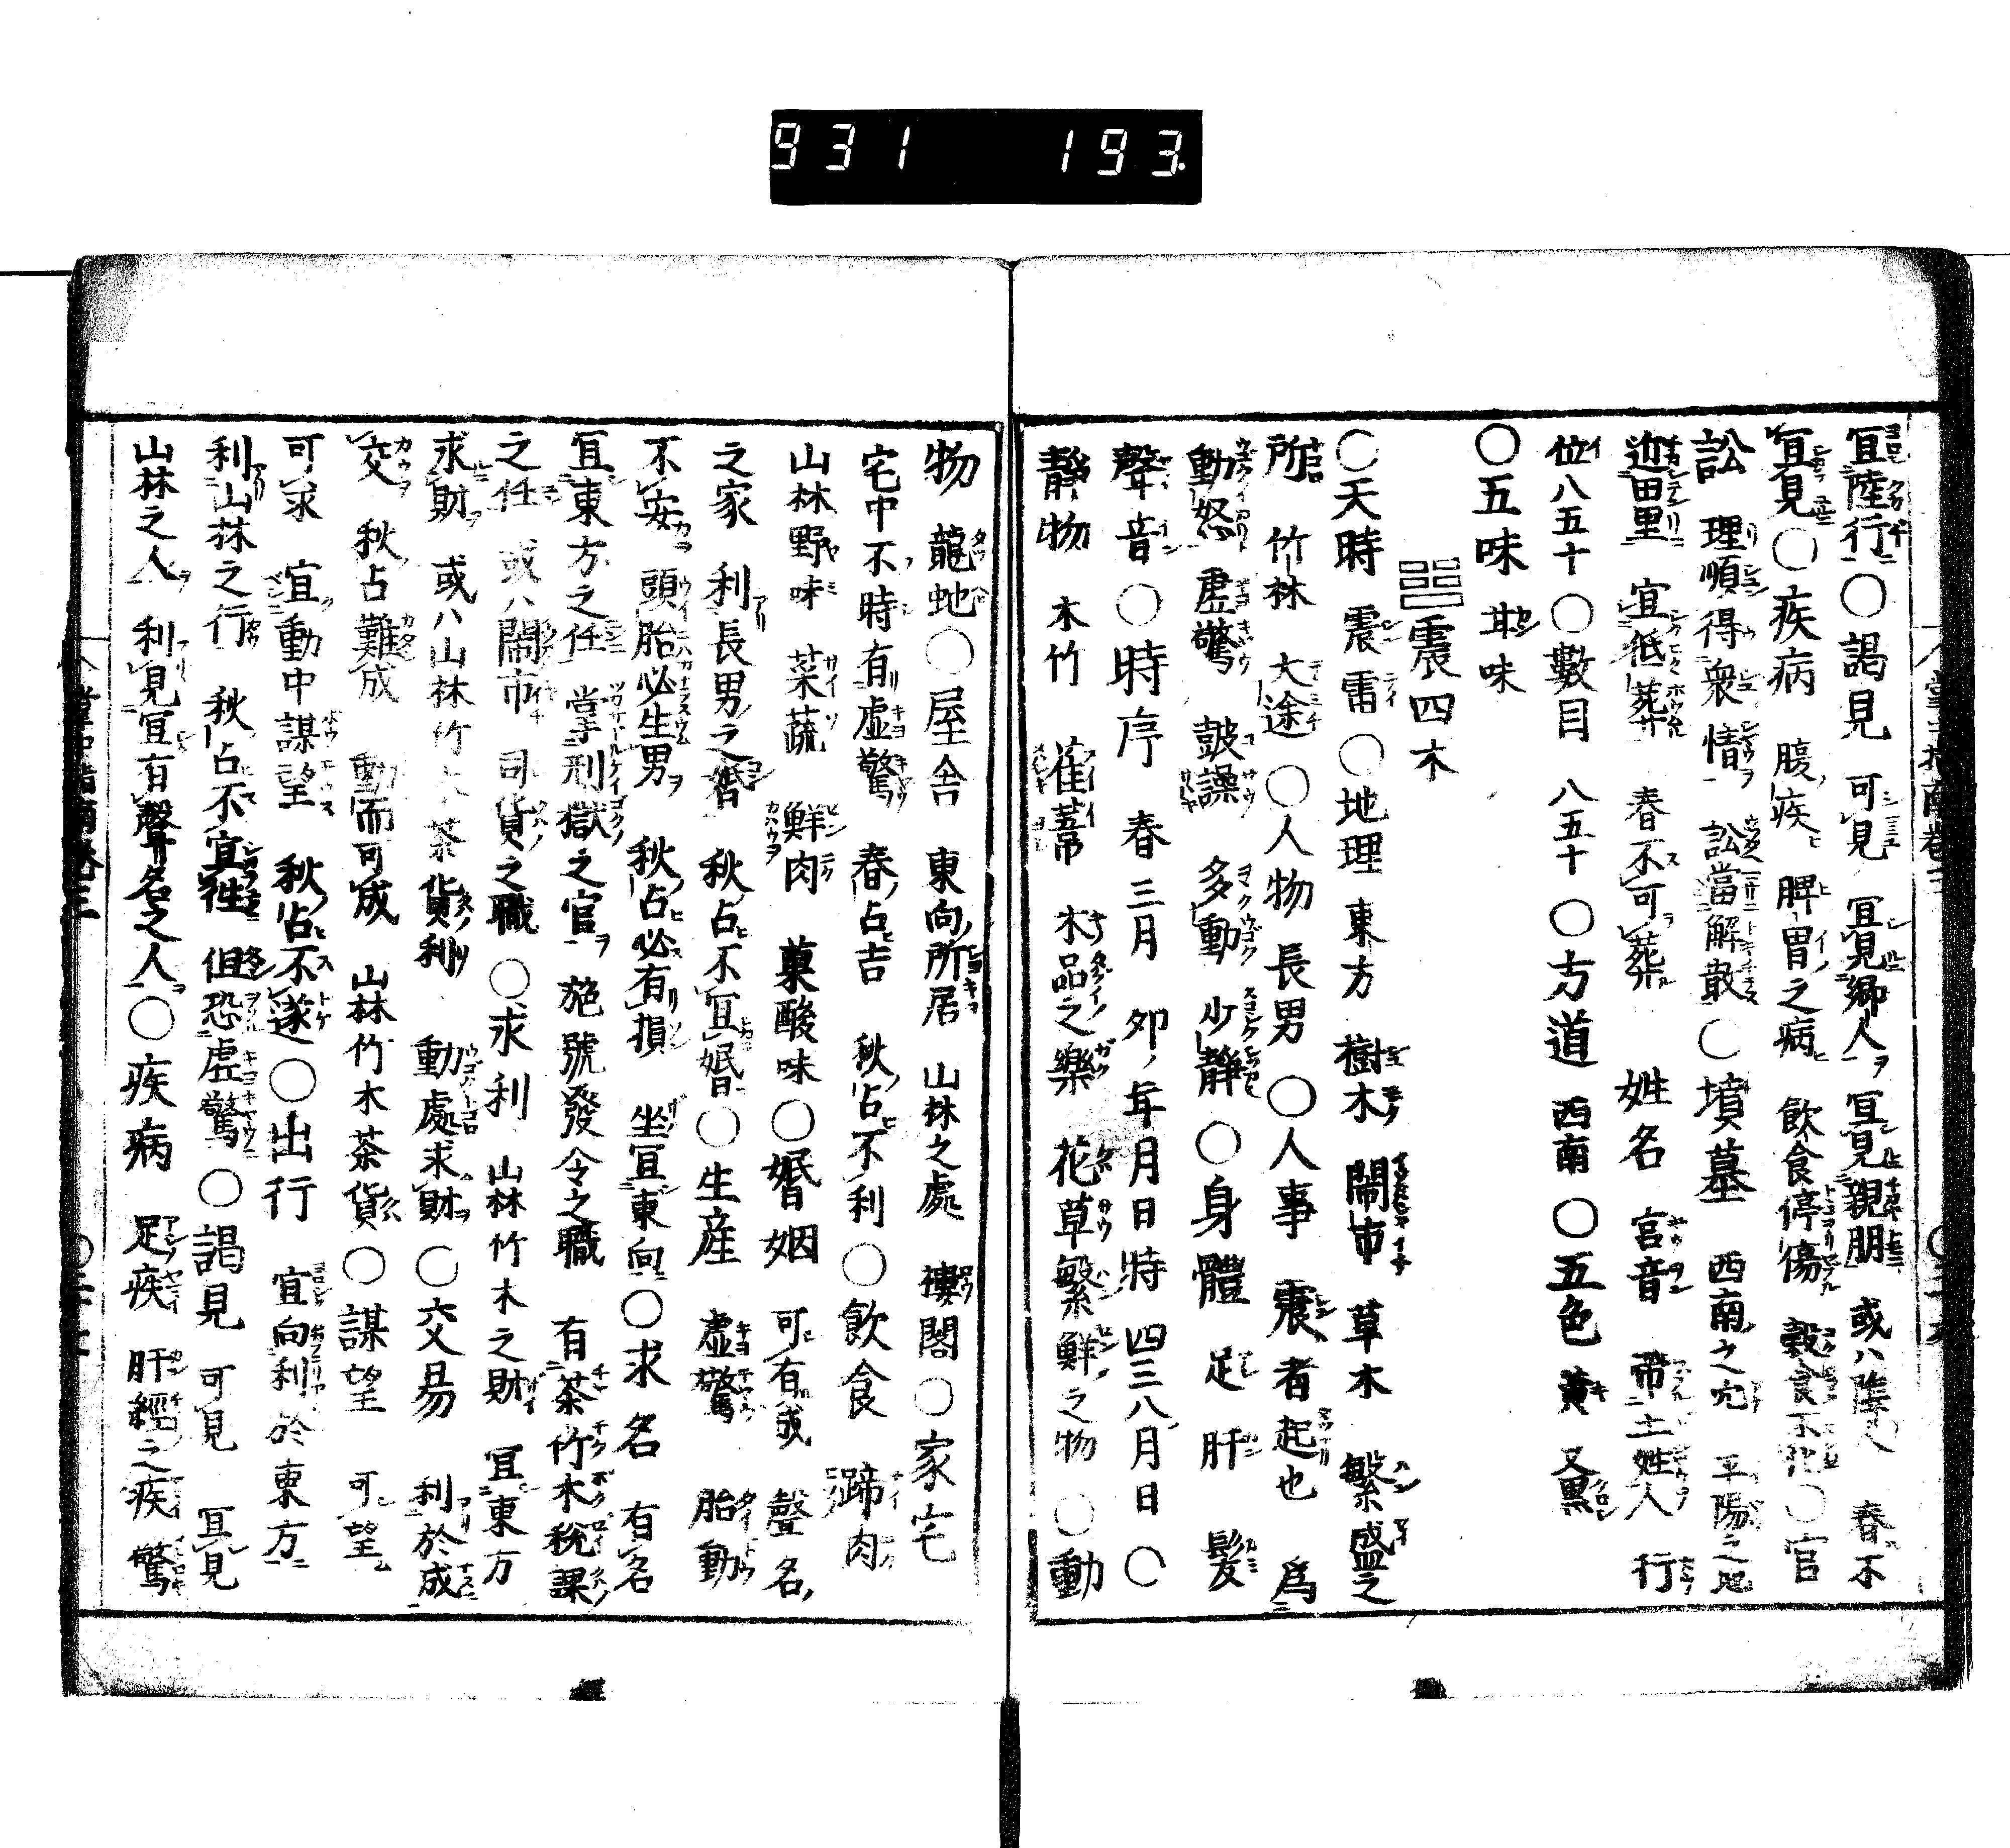 931 193.
宜陸行○謁見 可見 宜見郷人 宜見親朋 或ハ陰人 春不
宜見○疾病 腹疾 脾胃之病 飲食停傷 穀食不化○官
訟 理順得衆情 訟當解散○墳墓 西南之穴 平陽之地
迩田里 宜低葬 春不可葬 姓名 宮音 帶土姓人 行
位八五十○數目 八五十○方道 西南○五色 黄 又黒
○五味 甘味
☳震四木
○天時 震 雷○地理 東方 樹木 鬧市 草木 繁盛之
所 竹林 大途○人物 長男○人事 震者起也 爲
動怒 虚驚 鼓譟 多動 少靜○身體 足 肝 髮
聲音○時序 春三月 卯年月日時 四三八月日○
靜物 木竹 萑葦 木品之樂 花草繁鮮之物○動
物 龍虵○屋舎 東向所居 山林之處 樓閣○家宅
宅中不時有虚驚 春占吉 秋占不利○飲食 蹄肉
山林野味 菜蔬 鮮肉 菓酸味○婚姻 可有成 聲名
之家 利長男之婚 秋占不宜婚○生産 虚驚 胎動
不安 頭胎必生男 秋占必有損 坐宜東向○求名 有名
宜東方之任 掌刑獄之官 施號發令之職 有茶竹木税課
之任 或ハ鬧市 司貨之職○求利 山林竹木之財 宜東方
求財 或ハ山林竹木茶貨利 動處求財○交昜 利於成
交 秋占難成 動而可成 山林竹木茶貨○謀望 可望
可求 宜動中謀望 秋占不遂○出行 宜向利於東方
利山林之行 秋占不宜往 但恐虚驚○謁見 可見 宜見
山林之人 利見宜有聲名之人○疾病 足疾 肝經之疾 驚